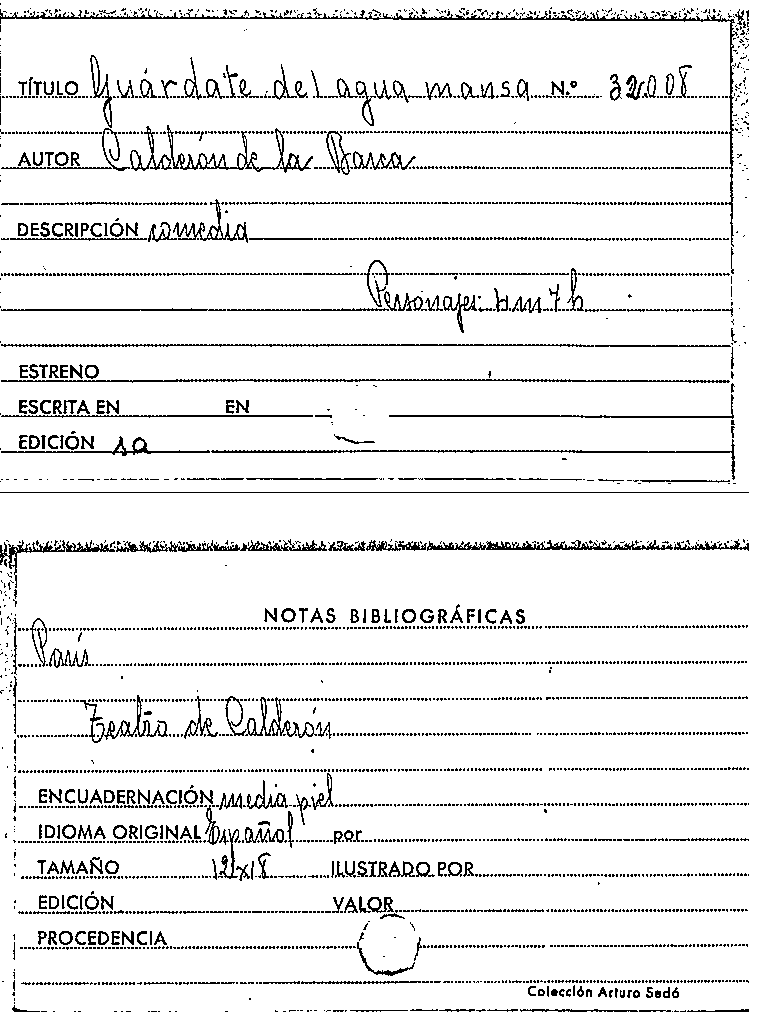 TÍTULO Guárdate del agua mansa N.º 32008
AUTOR Calderón de la Barca
DESCRIPCIÓN comedia
Personajes: 4m 7h
ESTRENO
ESCRITA EN EN
EDICIÓN sa
NOTAS BIBLIOGRÁFICAS
París
Teatro de Calderón
ENCUADERNACIÓN media piel
IDIOMA ORIGINAL Español por
TAMAÑO 12x18 ILUSTRADO POR
EDICIÓN VALOR
PROCEDENCIA
Colección Arturo Sedó